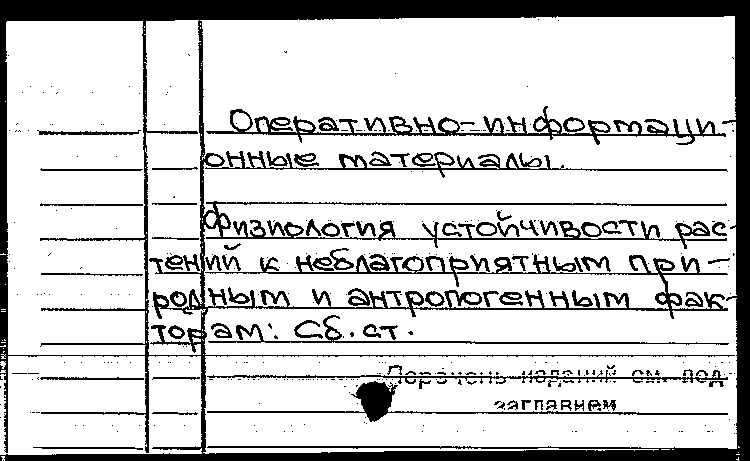 Оперативно-информаци-
онные материалы.
Физиология устойчивости рас-
тений к неблагоприятным при-
родным и антропогенным фак-
торам: Сб. ст.
Перечень изданий см. под
заглавием